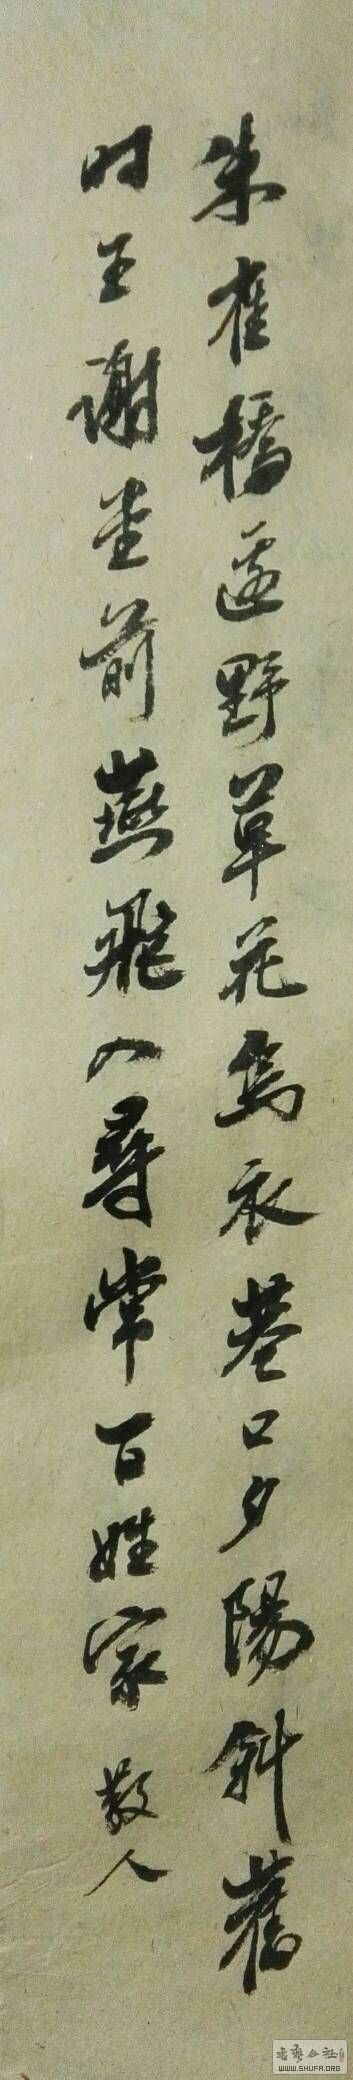 朱雀橋邊野草花烏衣巷口夕陽斜舊
时王謝堂前燕飛入尋常百姓家 散人
WWW.SHUFA.ORG